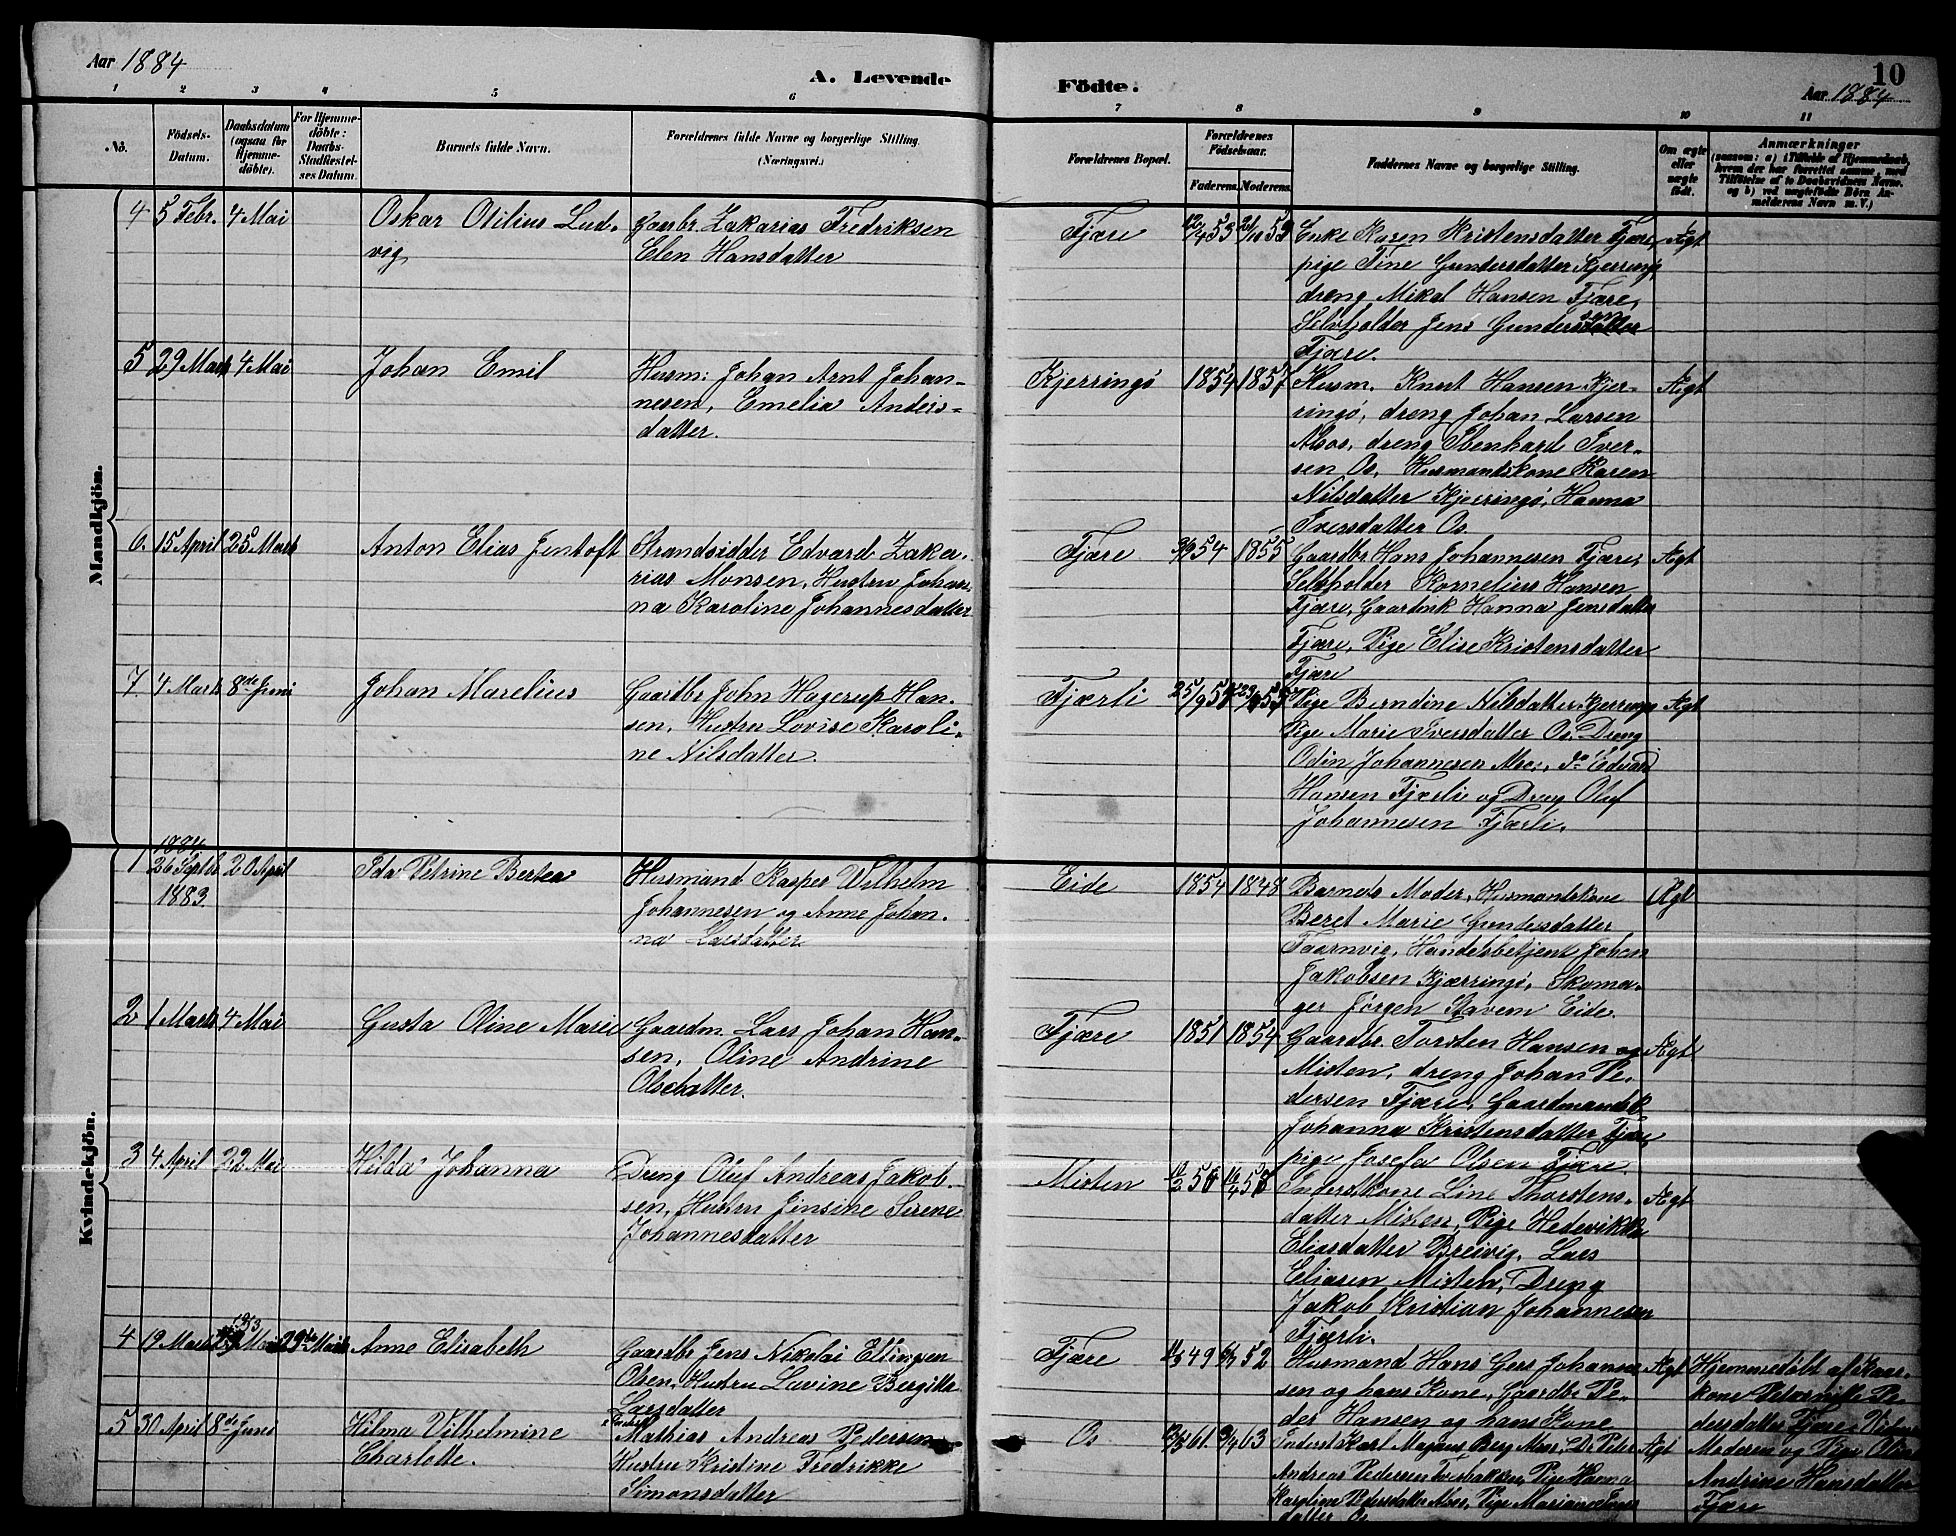 Aar 1884
A. Levende
Födte.
10
Aar 1884
1
2
3
4
5
6
7
8
9
10
11
No.
Födsels-
Datum.
Daabsdatum
(ogsaa for
Hjemme-
döbte).
For Hjemme-
döbte:
Daabs-
Stadfæstel-
ses Datum.
Barnets fulde Navn.
Forældrenes fulde Navne og borgerlige Stilling.
(Næringsvei.)
Forældrenes Bopæl.
Forældrenes
Födselsaar.
Faderens.
Moderens.
Faddernes Navne og borgerlige Stilling.
Om ægte
eller
uægte
födt.
Anmærkninger
(saasom: a) i Tilfælde af Hjemmedaab,
hvem der har forrettet samme, med
Tilföielse af to Daabsvidners Navne,
og b) ved uægtefödte Börn An-
melderens Navn m. V.)
Mandkjön.
4 5 Febr. 4 Mai
Oskar Otilius Lud-
vig
Gaarbr. Zakarias Fredriksen
Elen Hansdatter
Fjære
12/4 53
53
Enke Karen Kristensdatter Fjære,
pige Tine Gundersdatter Kjerringö,
dreng Mikal Hansen Fjære,
Selvholder Jens Gundersen
Fjære.
Ægt
5 29 Marts 4 Mai
Johan Emil
Husm: Johan Arnt Johan-
nesen, Emelia Anders-
datter.
Kjerringö
1854 1857
Husm. Knut Hansen Kjer-
ringö, dreng Johan Larsen
dreng Ebenhard Iver-
sen Os, Husmandskone Karen
Nilsdatter Kjerringö, Hanna
Iversdatter Os
Ægt
6. 15 April 25 Marts
Anton Elias Jentoft
Strandsidder Edvard Zaka-
rias Monsen, Hustru Johan-
na Karoline Johannesdatter
Fjære
54 1855
Gaardbr. Hans Johannesen Fjære,
Selvholder Kornelius Hansen
Fjære, Hanna Jensdatter
Fjære, Pige Elise Kristensdatter
Fjære
Ægt
7 4 Marts 8de Juni
Johan Marelius
Gaardbr John Hagerup Han-
sen, Hustru Lovise Karoli-
ne Nilsdatter.
Fjærli
25/9
Pige Berndine Nilsdatter Kjerringö
Pige Marie Iversdatter Os, Dreng
Odin Johannesen do Edvard
Hansen Fjærli og Dreng Oluf
Johannesen Fjærli.
Ægt
Kvindekjön.
1884
1 26 Septbr 20 April
1883.
Ida Petrine Bertea
Husmand Kasper Wilhelm
Johannesen og Anne Johan-
na Larsdatter
Eide
1854 1848
Barnets Moder, Husmandskone
Beret Marie Gundersdatter
Taarnvig, Handelsbetjent Johan
Jakobsen Kjærringö, Skoma-
ger Jörgen Stavem Eide.
Ægt
2 1 Marts 4 Mai
Gusta Oline Marie
Gaardm. Lars Johan Han-
sen, Oline Andrine
Olsdatter.
Fjære
1851 1854
Gaardbr. Torsten Hansen og
Misten, dreng Johan Pe-
dersen Fjære, Gaardmandsk
Johanna Kristensdatter Fjære
pige Josefa Olsen Fjære
Ægt
3 4 April 22 Mai
Hilda Johanna
Dreng Oluf Andreas Jakob-
sen, Hustru Jensine Sirene
Johannesdatter
Misten
Inderstkone Line Thorstens-
datter Misten, Pige Hedevikka
Eliasdatter Breivig, Lars
Eliasen Misten, Dreng
Jakob Kristian Johannesen
Fjærli.
Ægt
4 19 Marts
Anne Elisabeth
Gaardbr Jens Nikolai Ellingsen
Olsen, Hustru Lavine Bergitte
Larsdatter
Fjære
49 52
Husmand Hans Johanne-
sen og hans Kone, Gaardbr. Pe-
der Hansen og hans Kone
Ægt
Hjemmedöbt af
kone Pe-
dersdatter Fjære
Moderen og Oline
Andrine Hansdatter
Fjære
5 30 April 8de Juni
Hilma Vilhelmine
Charlotte.
Mathias Andreas Pedersen
Hustru Kristine Fredrikke
Simonsdatter
Os
61. 63
Inderst Karl Magnus Berg Do Peter
Andreas Pedersen Pige Hanna
Karolina Pedersdatter Pige
datter Os
Ægt